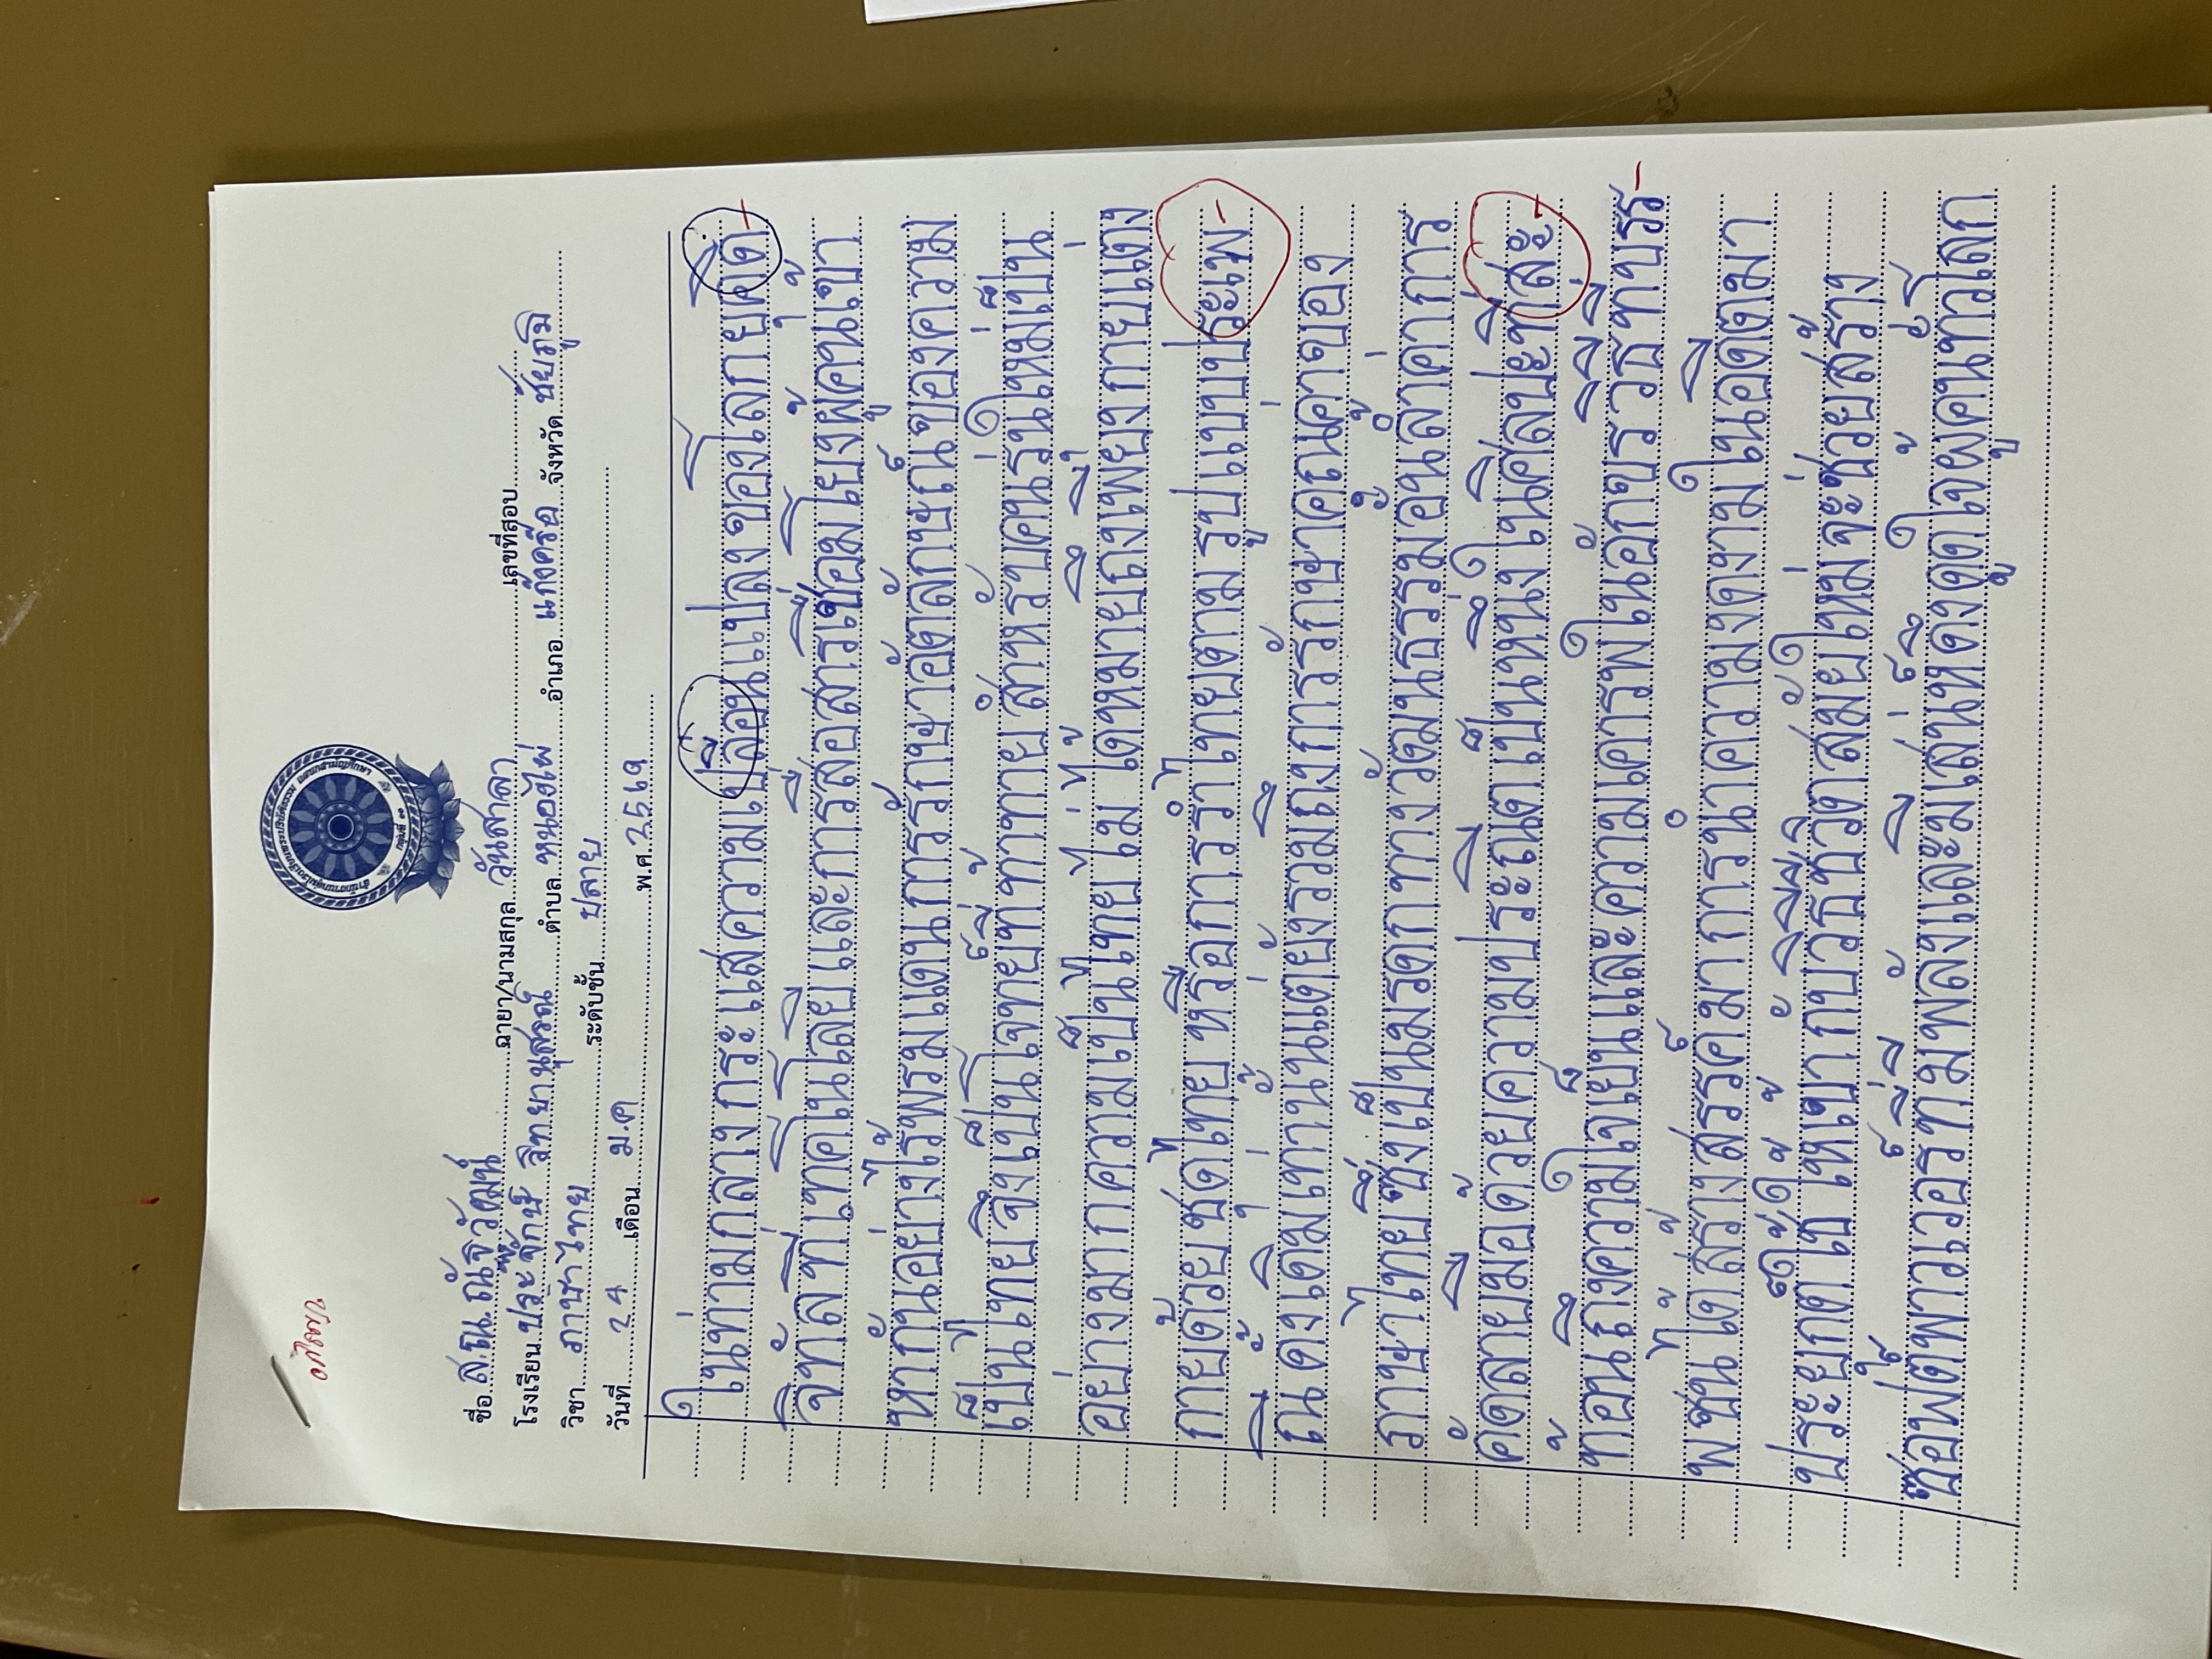 สำนักงานกลุ่มโรงเรียนพระปริยัติธรรม แผนกสามัญศึกษา
กลุ่มที่ ๑๑
ชื่อ ส.ณ. ณัฐวัฒน์ ฉายา/นามสกุล วันสาลา เลขที่สอบ
โรงเรียน วิทยานุสรณ์ ตำบล หนองไผ่ อำเภอ แก้งคร้อ จังหวัด ชัยภูมิ
วิชา ภาษาไทย ระดับชั้น ปลาย
วันที่ 24 เดือน ม.ค พ.ศ. 2569
ในท่ามกลางกระแสความเปลื่อนแปลงของโลกยุคดิ-
จิทัลที่เทคโนโลยีและการสื่อสารเชื่อมโยงผู้คนเข้า
หากันอย่างไร้พรมแดนการรักษาอัตลักษณ์ของความ
เป็นไทยจึงเป็นโจทย์ที่ท้าทาย สำหรับคนรุ่นใหม่เป็น
อย่างมากความเป็นไทย ไม่ ได้หมายถึงเพียงการแต่ง
กายด้วยชุดไทย หรือการรำไทยตาม รูปแบบประเพ-
ณีดั้งเดิมเท่านั้นแต่ยังรวมถึงการรักษาคุณค่าของ
ภาษาไทยซึ่งเป็นมรดกทางวัฒนธรรมอันล้ำค่าการ
คัดลายมือด้วยความประณีตเป็นหนึ่งในศิลปะที่สะ-
ท้อนถึงความใจเย็นและความเคารพในอักขรวิธีที่บรร-
พชนได้สร้างสรรค์มาการนำความงดงามในอดีตมา
ประยุกต์ใช้ให้เข้ากับวิถีชีวิตสมัยใหม่จะช่วยสร้าง
ซอฟต์พาวเวอร์ที่มีพลังและมีเสน่ห์ดึงดูดใจผู้คนทั่วโลก